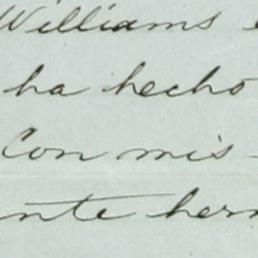 Williams
ha hecho
Con mis
nte her